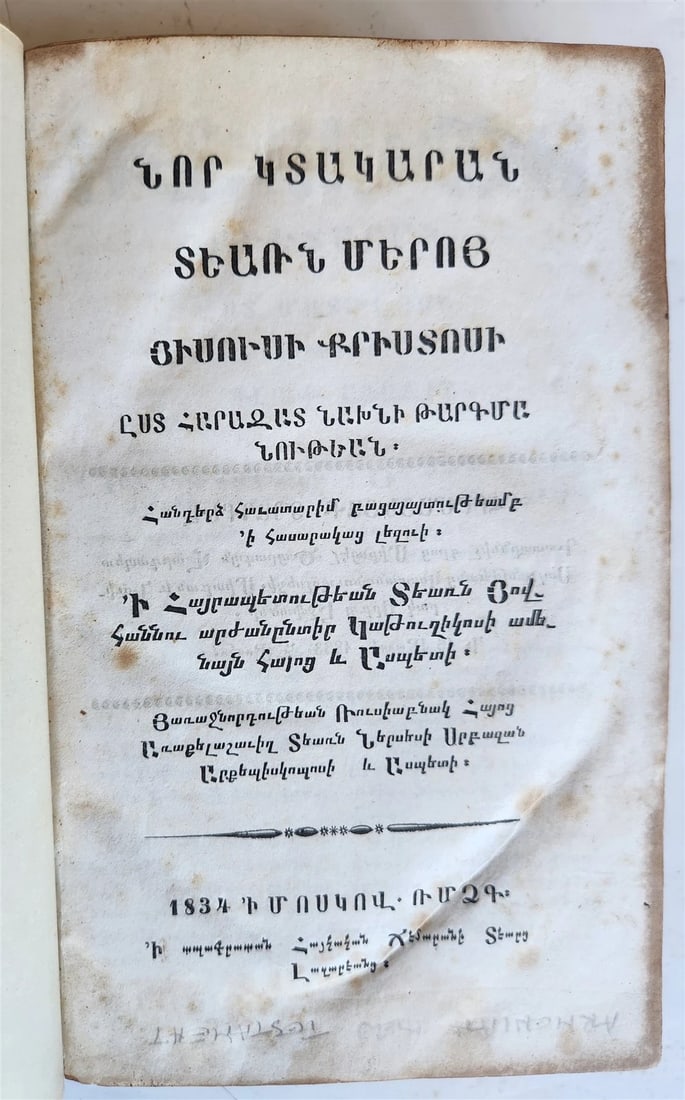 ՆՈՐ ԿՏԱԿԱՐԱՆ
ՏԵԱՌՆ ՄԵՐՈՅ
ՅԻՍՈՒՍԻ ՔՐԻՍՏՈՍԻ
ԸՍՏ ՀԱՐԱԶԱՏ ՆԱԽՆԻ ԹԱՐԳՄԱ
ՆՈՒԹԵԱՆ։
Հանդերձ հաւատարիմ բացայայտութեամբ
՚ի հասարակաց լեզուի։
՚Ի Հայրապետութեան Տեառն Յով֊
հաննու արժանընտիր Կաթուղիկոսի ամե֊
նայն Հայոց և Ասպետի։
Յառաջնորդութեան Ռուսիաբնակ Հայոց
Առաքելաշաւիղ Տեառն Ներսեսի Սրբազան
Արքեպիսկոպոսի և Ասպետի։
1834 ՚Ի ՄՈՍԿՈՎ. ՌՄՁԳ։
՚Ի տպագրատան Հայկական Ճեմարանի Տեարց
Լազարեանց։
TESTAMENT